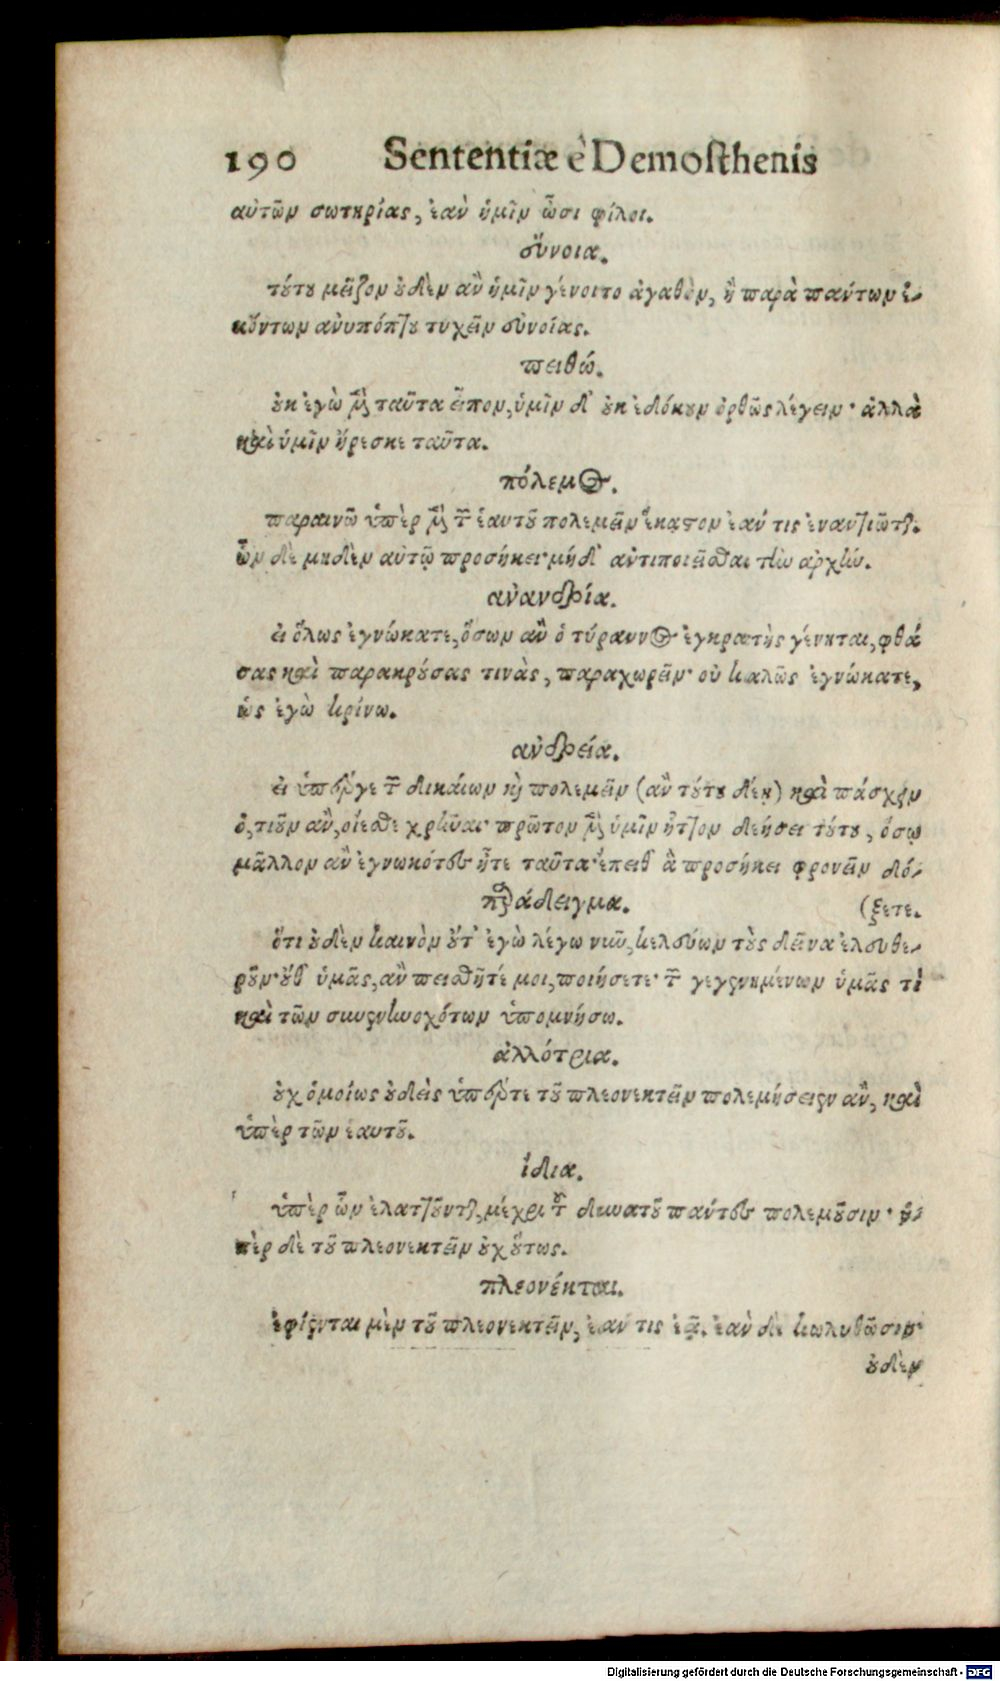 190 Sententiæ è Demosthenis
αὐτῶν σωτηρίας, ἐὰν ὑμῖν ὦσι φίλοι.
σύνοια.
τούτου μεῖζον οὐδὲν ἂν ὑμῖν γένοιτο ἀγαθὸν, ἢ παρὰ πάντων ἑ-
κόντων ἀνυπόπτου τυχεῖν συνοίας.
πειθώ.
οὐκ ἐγὼ μὲν ταῦτα εἶπον, ὑμῖν δ' οὐκ ἐδόκουν ὀρθῶς λέγειν· ἀλλὰ
καὶ ὑμῖν ἤρεσκε ταῦτα.
πόλεμος.
παραινῶ ὑπὲρ μὲν τῶν ἑαυτοῦ πολεμεῖν ἕκαστον ἐάν τις ἐναντιῶται.
ὧν δὲ μηδὲν αὐτῷ προσήκει· μηδ' ἀντιποιεῖσθαι τὴν ἀρχήν.
ἀνανδρία.
εἰ ὅλως ἐγνώκατε, ὅσων ἂν ὁ τύραννος ἐγκρατὴς γένηται, φθά
σας καὶ παρακρούσας τινὰς, παραχωρεῖν· οὐ καλῶς ἐγνώκατε,
ὡς ἐγὼ κρίνω.
ἀνδρεία.
εἰ ὑπέρ γε τῶν δικαίων καὶ πολεμεῖν (ἂν τούτου δέῃ) καὶ πάσχειν
ὁ, τιοῦν ἂν, οἴεσθε χρῆναι· πρῶτον μὲν ὑμῖν ἧττον δεήσει τούτου, ὅσῳ
μᾶλλον ἂν ἐγνωκότες ἦτε ταῦτα· ἔπειθ' ἃ προσήκει φρονεῖν δό-
παράδειγμα. (ξετε.
ὅτι οὐδὲν καινὸν οὔτ' ἐγὼ λέγω νῦν, κελεύων τοὺς δεῖνα ἐλευθε-
ροῦν· οὔθ' ὑμᾶς, ἂν πεισθῆτέ μοι, ποιήσετε· τῶν γεγενημένων ὑμᾶς τι
καὶ τῶν συνενηνοχότων ὑπομνήσω.
ἀλλότρια.
οὐχ ὁμοίως οὐδεὶς ὑπέρ τε τοῦ πλεονεκτεῖν πολεμήσειεν ἂν, καὶ
ὑπὲρ τῶν ἑαυτοῦ.
ἴδια.
ὑπὲρ ὧν ἐλαττοῦνται, μέχρι τοῦ δυνατοῦ πάντες πολεμοῦσιν· ὑ-
πὲρ δὲ τοῦ πλεονεκτεῖν οὐχ οὕτως.
πλεονέκται.
ἐφίενται μὲν τοῦ πλεονεκτεῖν, ἐάν τις ἐᾷ. ἐὰν δὲ κωλυθῶσιν·
οὐδὲν
Digitalisierung gefördert durch die Deutsche Forschungsgemeinschaft - DFG